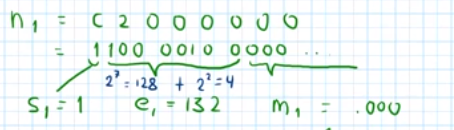 n₁ = C 2 0 0 0 0 0 0
= 1 1 0 0 0 0 1 0 0 0 0 0 ...
2⁷ = 128 + 2² = 4
S₁ = 1 e₁ = 132 m₁ = .000